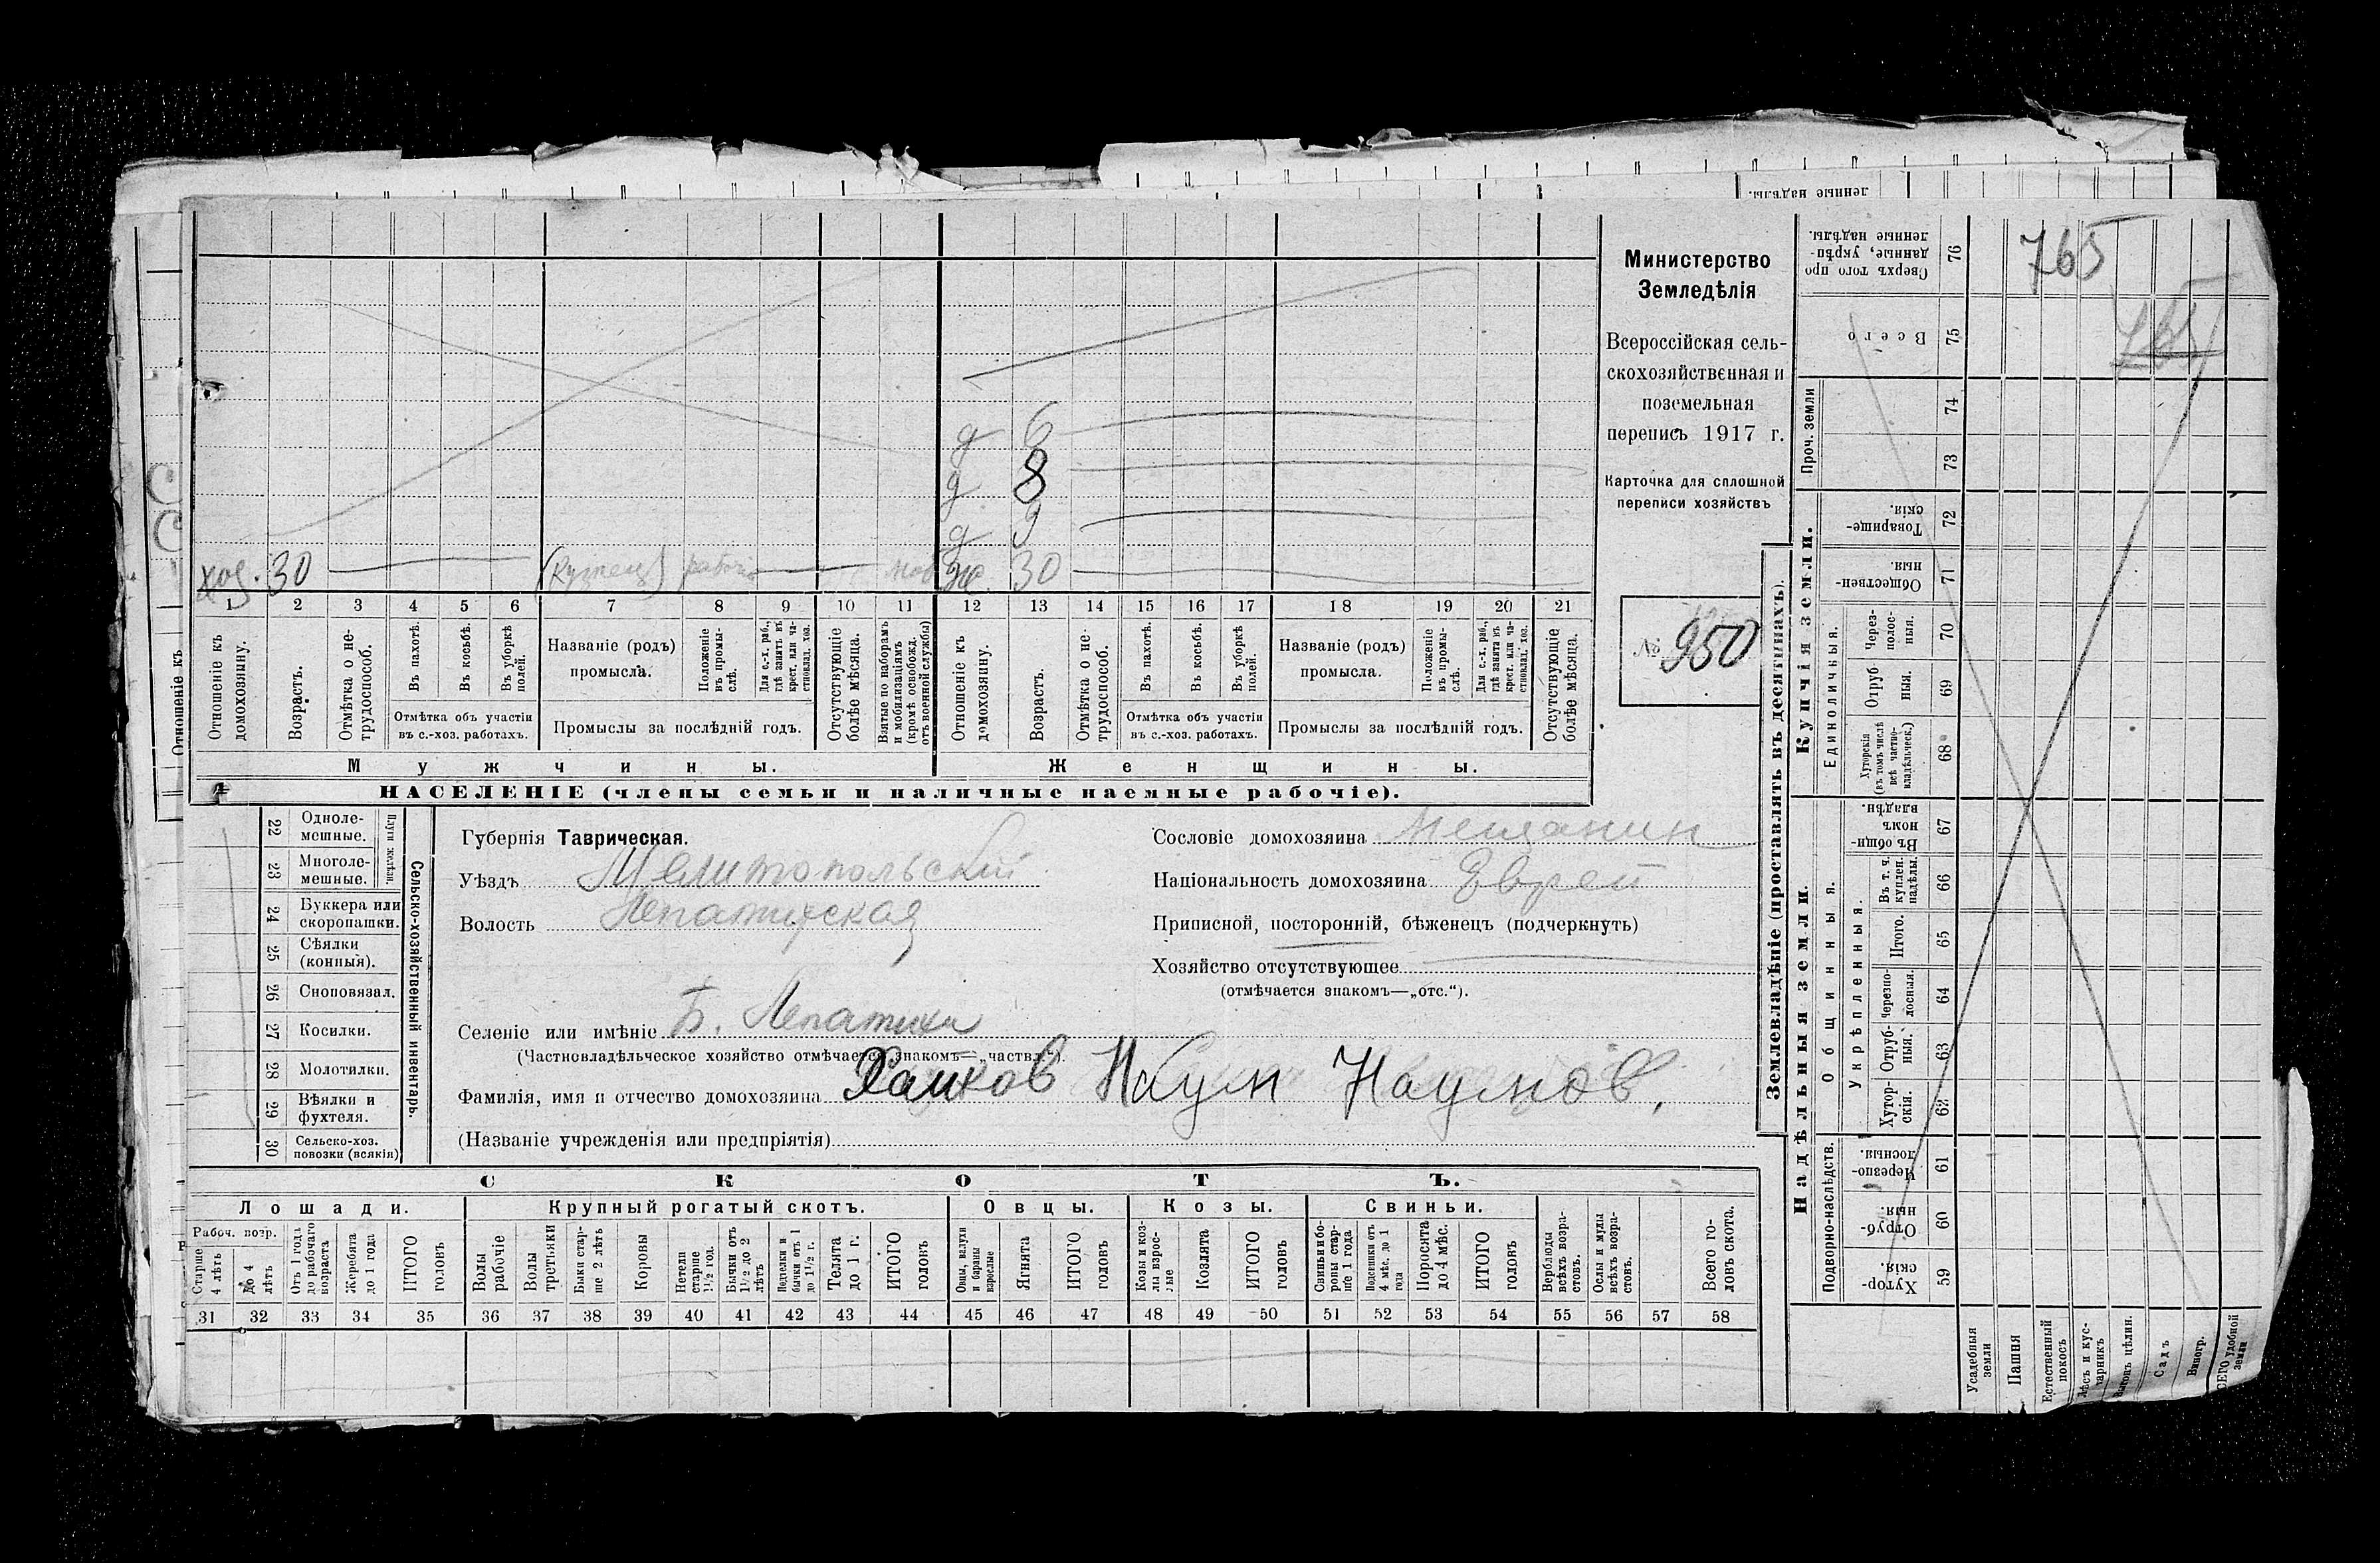 ленные надѣлы.
765
765
д 6
д 8
д 9
хоз. 30 (кузнец) рабоч моб ж. 30
1 2 3 4 5 6 7 8 9 10 11 12 13 14 15 16 17 18 19 20 21
Отношеніе къ домохозяину.
Возрастъ.
Отмѣтка о не-трудоспособ.
Въ пахотѣ.
Въ косьбѣ.
Въ уборкѣ полей.
Отмѣтка объ участіи
въ с.-хоз. работахъ.
Названіе (родъ)
промысла.
Положеніе въ промы-слѣ.
Для с.-х. раб., гдѣ занятъ въ крест. или ча-стновлад. хоз.
Промыслы за послѣдній годъ.
Отсутствующіе болѣе мѣсяца.
Взятые по наборамъ и мобилизаціямъ (кромѣ освобожд. отъ военной службы)
Отношеніе къ домохозяину.
Возрастъ.
Отмѣтка о не-трудоспособ.
Въ пахотѣ.
Въ косьбѣ.
Въ уборкѣ полей.
Отмѣтка объ участіи
въ с.-хоз. работахъ.
Названіе (родъ)
промысла.
Положеніе въ промы-слѣ.
Для с.-х. раб., гдѣ занята въ крест. или ча-стновлад. хоз.
Промыслы за послѣдній годъ.
Отсутствующіе болѣе мѣсяца.
Мужчины. Женщины.
НАСЕЛЕНІЕ (члены семьи и наличные наемные рабочіе).
Министерство
Земледѣлія
Всероссійская сель-
скохозяйственная и
поземельная
перепись 1917 г.
Карточка для сплошной
переписи хозяйствъ
№ 950
22 Одноле-мешные.
23 Многоле-мешные.
Плуги желѣзн.
24 Буккера или скоропашки.
25 Сѣялки (конныя).
26 Сноповязал.
27 Косилки.
28 Молотилки.
29 Вѣялки и фухтеля.
30 Сельско-хоз. повозки (всякія)
Сельско-хозяйственный инвентарь.
Губернія Таврическая.
Уѣздъ Мелитопольский
Волость Лепатихская
Селеніе или имѣніе Б. Лепатиха
(Частновладѣльческое хозяйство отмѣчается знакомъ—„частвл.").
Фамилія, имя и отчество домохозяина Хаиков Наум Наумов.
(Названіе учрежденія или предпріятія)
Сословіе домохозяина Мещанин
Національность домохозяина Еврей
Приписной, посторонній, бѣженецъ (подчеркнуть)
Хозяйство отсутствующее
(отмѣчается знакомъ—„отс.").
СКОТЪ.
Лошади. Крупный рогатый скотъ. Овцы. Козы. Свиньи.
Рабоч. возр.
Старше 4 лѣтъ
До 4 лѣтъ
Отъ 1 года до рабочаго возраста
Жеребята до 1 года
ИТОГО головъ
Волы рабочіе
Волы третьяки
Быки стар-ше 2 лѣтъ
Коровы
Нетели старше 1½ год.
Бычки отъ 1½ до 2 лѣтъ
Подтелки и бычки отъ 1 до 1½ г.
Телята до 1 г.
ИТОГО головъ
Овцы, валухи и бараны взрослые
Ягнята
ИТОГО головъ
Козы и коз-лы взрос-лые
Козлята
ИТОГО головъ
Свиньи и бо-ровы стар-ше 1 года
Подсвинки отъ 4 мѣс. до 1 года
Поросята до 4 мѣс.
ИТОГО головъ
Верблюды всѣхъ возра-стовъ.
Ослы и мулы всѣхъ возра-стовъ.
Всего го-ловъ скота.
31 32 33 34 35 36 37 38 39 40 41 42 43 44 45 46 47 48 49 50 51 52 53 54 55 56 57 58
Землевладѣніе (проставлять въ десятинахъ).
Надѣльныя земли. Купчія земли.
Подворно-наслѣдств.
Общинныя.
Укрѣпленныя.
Единоличныя.
Проч. земли
Хутор-скія. 59
Отруб-ныя. 60
Черезпо-лосныя. 61
Хутор-скія. 62
Отруб-ныя. 63
Черезпо-лосныя. 64
Итого. 65
Въ т. ч. куплен. надѣлы. 66
Въ общин-номъ владѣн. 67
Хуторскія (въ томъ числѣ всѣ частно-владѣльческ.) 68
Отруб-ныя. 69
Через-полос-ныя. 70
Обществен-ныя. 71
Товарище-скія. 72
73
74
Всего 75
Сверхъ того про-данные, укрѣп-ленные надѣлы. 76
Усадебныя земли
Пашня
Естественный покосъ
Лѣсъ и кус-тарникъ
Выгонъ цѣлин.
Садъ
Виногр.
ВСЕГО удобной земли